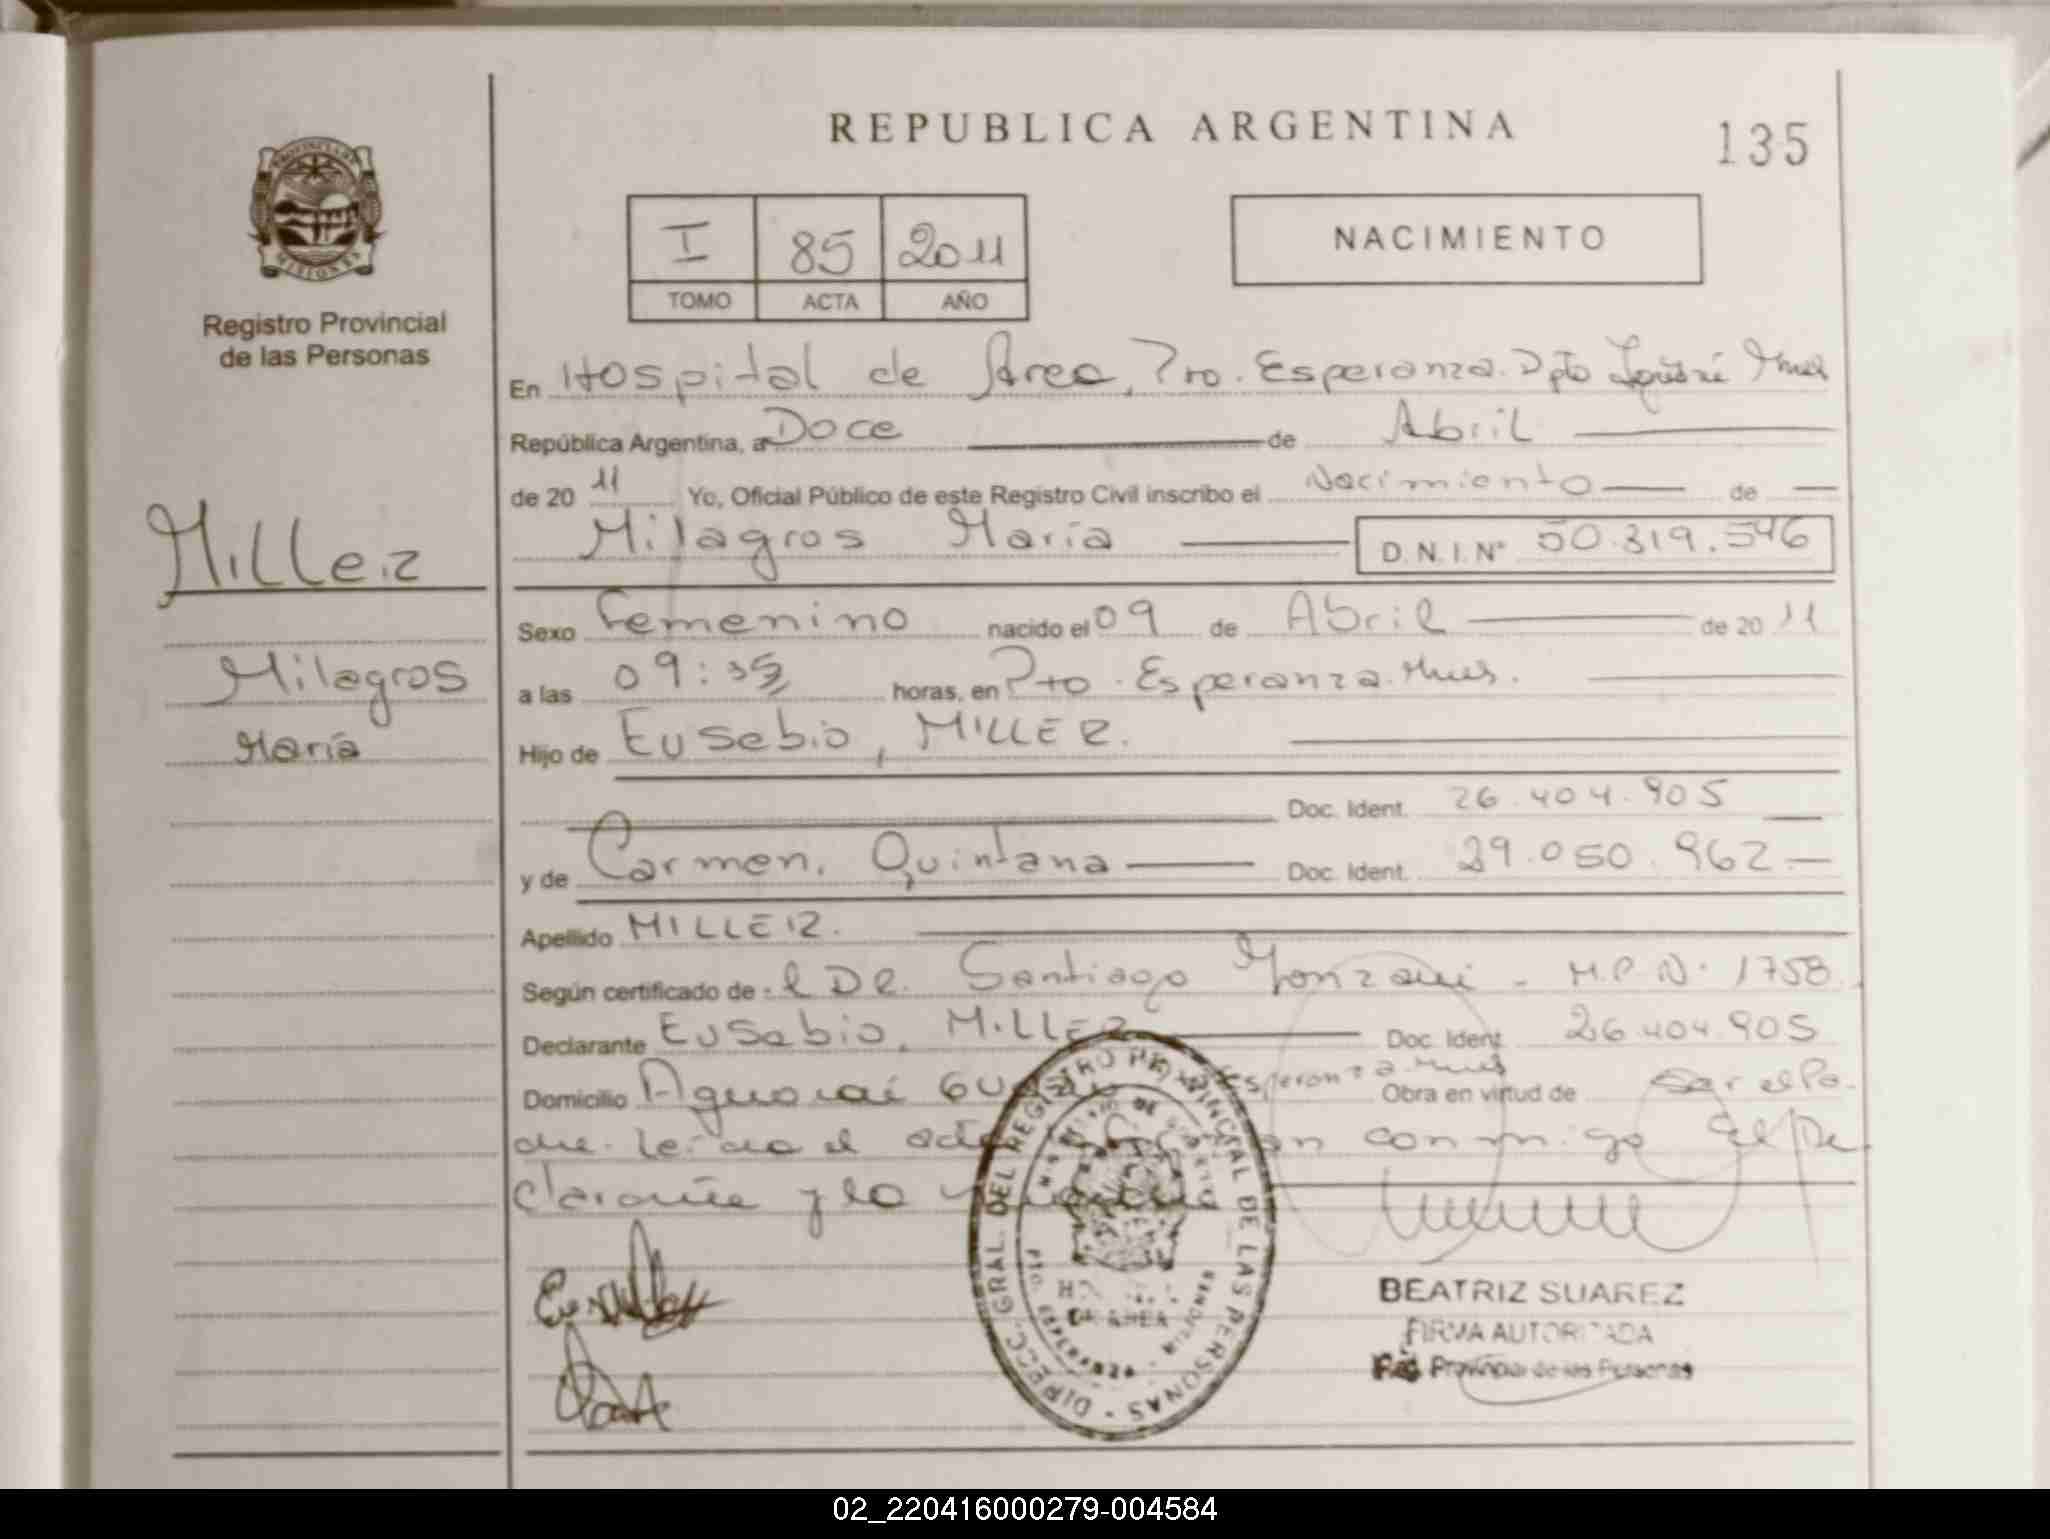 REPUBLICA ARGENTINA
135
PROVINCIA DE
MISIONES
Registro Provincial
de las Personas
I 85 2011
TOMO ACTA AÑO
NACIMIENTO
En Hospital de Area, Pto. Esperanza. Dpto Iguazú Mnes
República Argentina, a Doce de Abril
de 20 11 Yo, Oficial Público de este Registro Civil inscribo el Nacimiento de
Miller
Milagros María D.N.I.N° 50.319.546
Sexo Femenino nacido el 09 de Abril de 20 11
Milagros
a las 09:35 horas, en Pto. Esperanza. Mnes.
María
Hijo de Eusebio, MILLER.
Doc. Ident. 26.404.905
y de Carmen, Quintana Doc. Ident. 29.050.962
Apellido MILLER.
Según certificado de el DR. Santiago M.P.N. 1758
Declarante Eusebio, MILLER Doc. Ident. 26.404.905
Domicilio Esperanza. Mnes Obra en virtud de Ser el Pa-
dre. Leída el acta conmigo el De
clarante y la
DIRECC. GRAL. DEL REGISTRO PROVINCIAL DE LAS PERSONAS
DE AREA
PTO. ESPERANZA - MISIONES
BEATRIZ SUAREZ
FIRMA AUTORIZADA
Reg. Provincial de las Personas
02_220416000279-004584